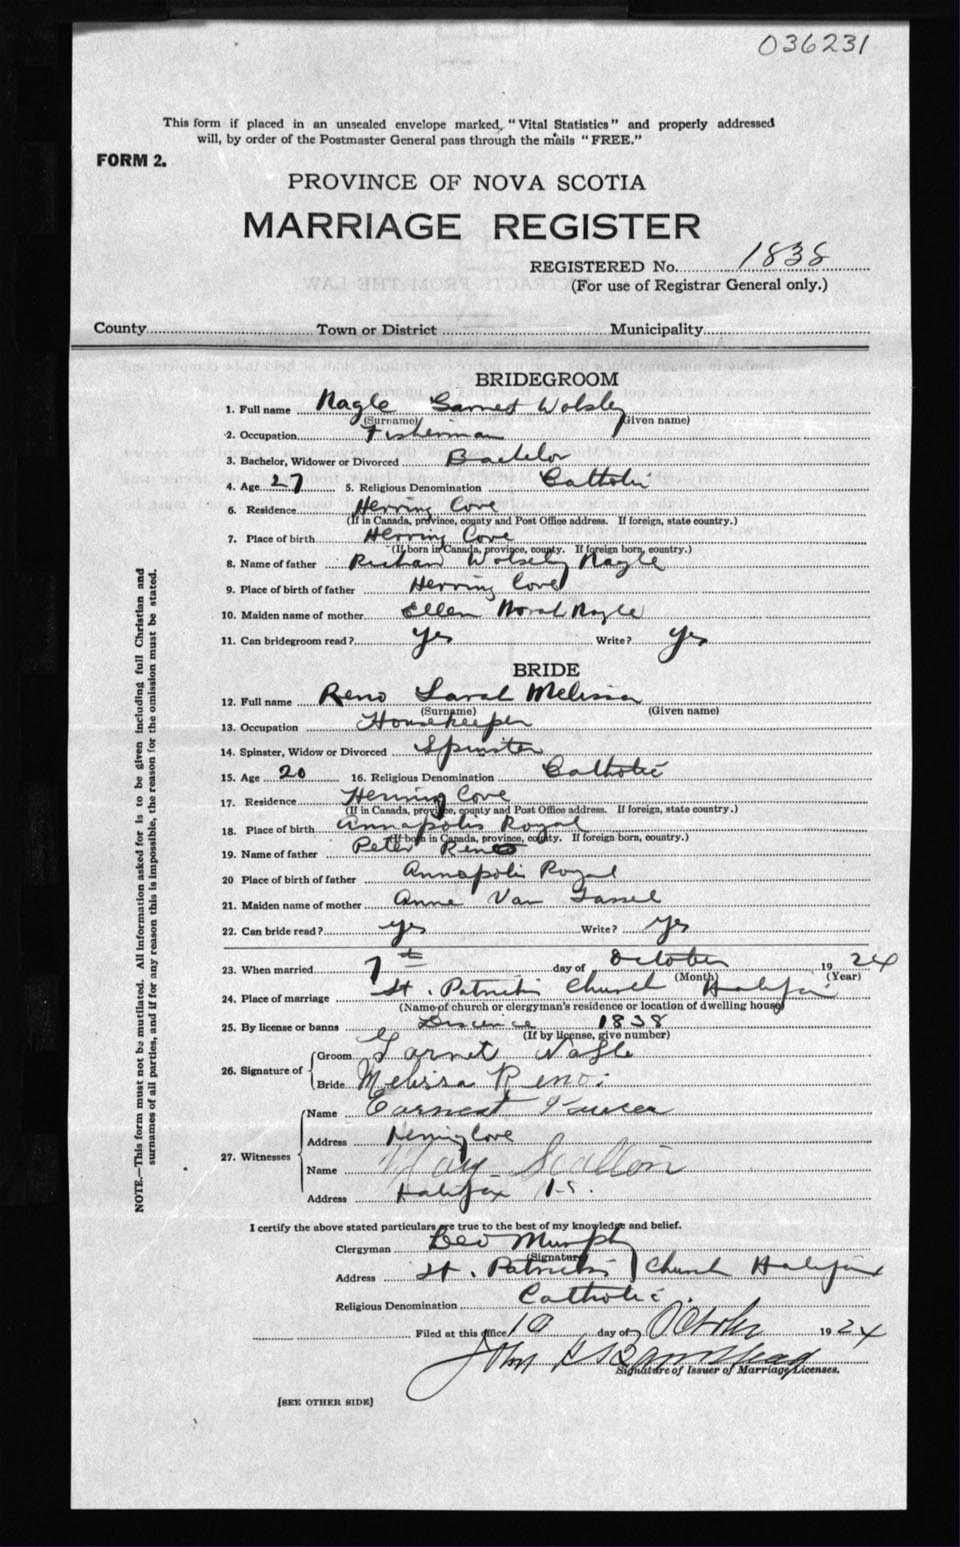 036231
This form if placed in an unsealed envelope marked, "Vital Statistics" and properly addressed
will, by order of the Postmaster General pass through the mails "FREE."
FORM 2.
PROVINCE OF NOVA SCOTIA
MARRIAGE REGISTER
REGISTERED No. 1838
(For use of Registrar General only.)
County Town or District Municipality
BRIDEGROOM
1. Full name Nagle Garnet Wolsley
(Surname) (Given name)
2. Occupation Fisherman
3. Bachelor, Widower or Divorced Bachelor
4. Age 27 5. Religious Denomination Catholic
6. Residence Herring Cove
(If in Canada, province, county and Post Office address. If foreign, state country.)
7. Place of birth Herring Cove
(If born in Canada, province, county. If foreign born, country.)
8. Name of father Richard Wolsely Nagle
9. Place of birth of father Herring Cove
10. Maiden name of mother Ellen Norah Nagle
11. Can bridegroom read? Yes Write? Yes
BRIDE
12. Full name Reno Sarah Melissa
(Surname) (Given name)
13. Occupation Housekeeper
14. Spinster, Widow or Divorced Spinster
15. Age 20 16. Religious Denomination Catholic
17. Residence Herring Cove
(If in Canada, province, county and Post Office address. If foreign, state country.)
18. Place of birth Annapolis Royal
(If born in Canada, province, county. If foreign born, country.)
19. Name of father Peter Reno
20 Place of birth of father Annapolis Royal
21. Maiden name of mother Anne Van Tassel
22. Can bride read? Yes Write? Yes
23. When married 7th day of October 1924
(Month) (Year)
24. Place of marriage St. Patricks Church Halifax
(Name of church or clergyman's residence or location of dwelling house)
25. By license or banns 1838
(If by license, give number)
26. Signature of
Groom Garnet Nagle
Bride Melissa Reno.
27. Witnesses
Name Earnest
Address Herring Cove
Name May Scallion
Address Halifax N.S.
I certify the above stated particulars are true to the best of my knowledge and belief.
Clergyman Leo Murphy
(Signature)
Address St. Patricks Church Halifax
Religious Denomination Catholic.
Filed at this office 10 day of October 1924
John
Signature of Issuer of Marriage Licenses.
[SEE OTHER SIDE]
NOTE.—This form must not be mutilated. All information asked for is to be given including full Christian and
surnames of all parties, and if for any reason this is impossible, the reason for the omission must be stated.